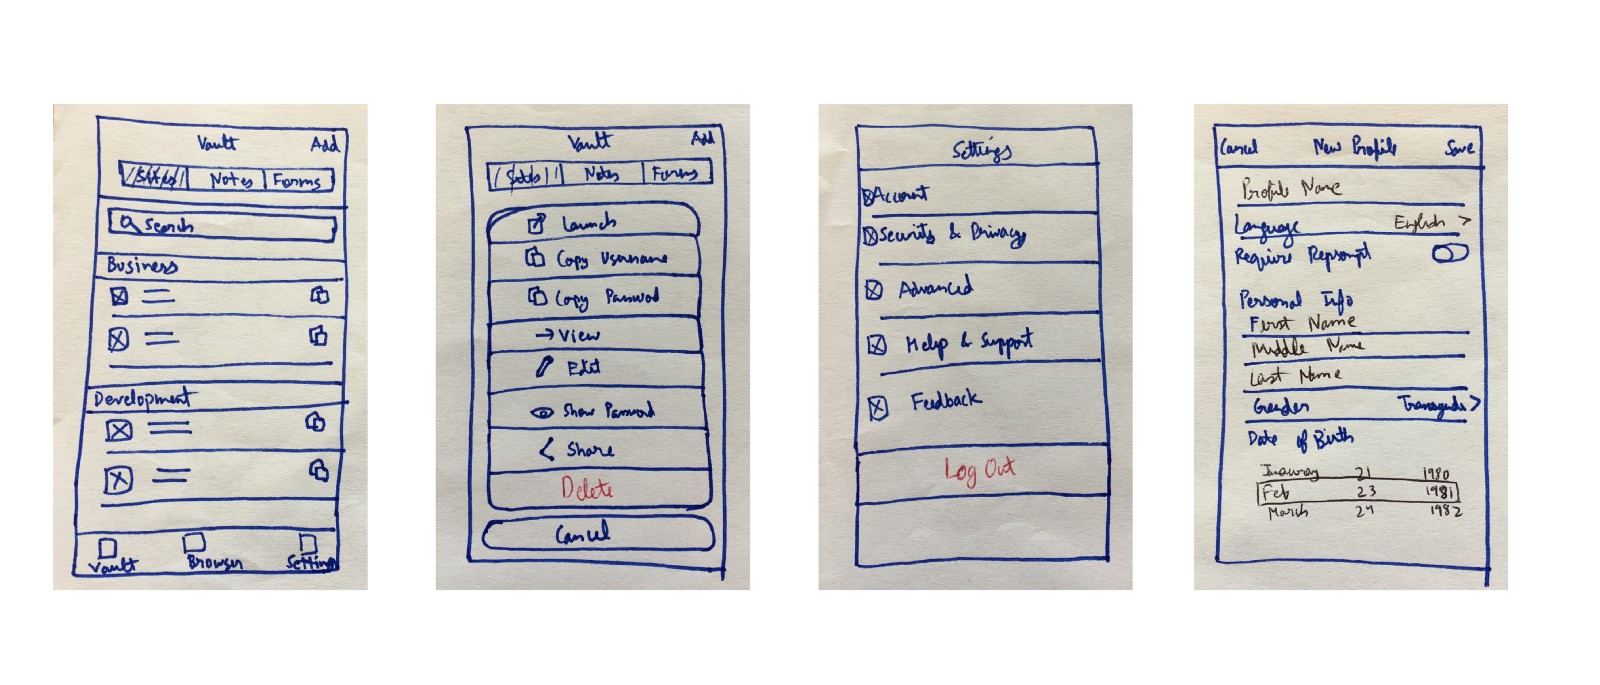 Vault Add
Sites Notes Forms
Search
Business
Development
Vault Browser Setting
Vault Add
Notes Forms
Launch
Copy Username
Copy Password
View
Edit
Show Password
Share
Delete
Cancel
Settings
Account
Security & Privacy
Advanced
Help & Support
Feedback
Log Out
Cancel New Profile Save
Profile Name
Language English >
Require Reprompt
Personal Info
First Name
Middle Name
Last Name
Gender Transgender >
Date of Birth
21 1980
Feb 23 1981
March 24 1982